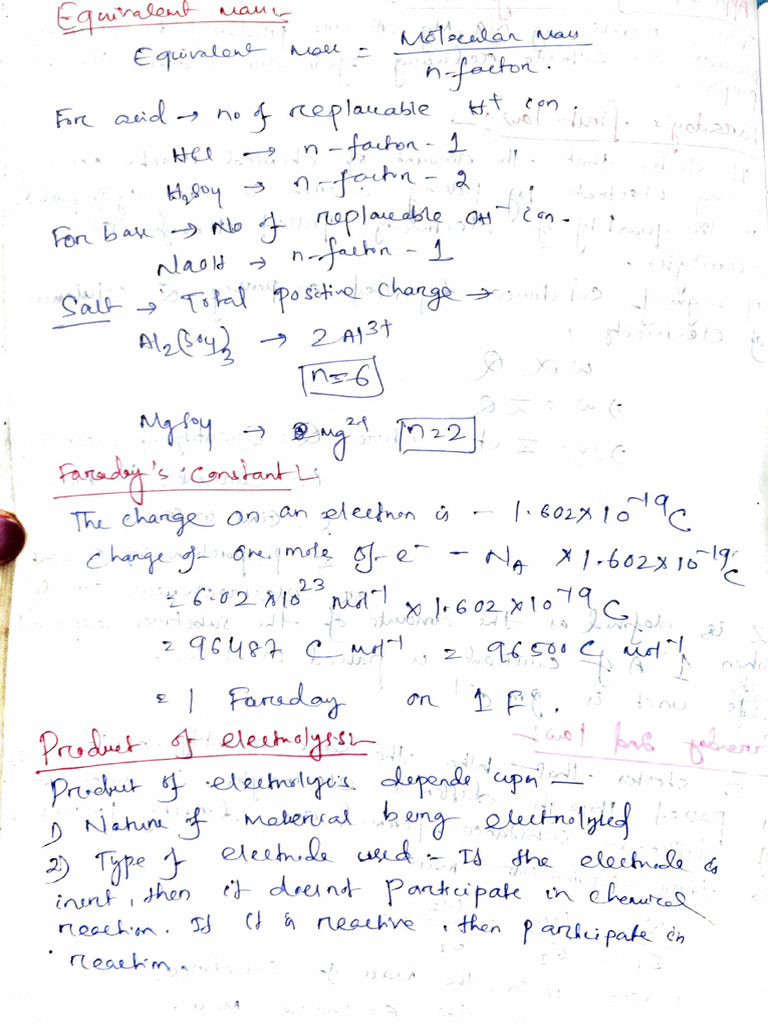 Equivalent mass:-
Equivalent Mass = Molecular Mass / n-factor.
For acid → no of replaceable H⁺ ion.
HCl → n-factor - 1
H₂SO₄ → n-factor - 2
For base → No of replaceable OH⁻ ion.
NaOH → n-factor - 1
Salt → Total positive charge →
Al₂(SO₄)₃ → 2Al³⁺
n=6
MgSO₄ → Mg²⁺ n=2
Faraday's Constant:-
The charge on an electron is - 1.602×10⁻¹⁹C
Charge of one mole of e⁻ - N_A × 1.602×10⁻¹⁹C
= 6.02×10²³ mol⁻¹ × 1.602×10⁻¹⁹ C
= 96487 C mol⁻¹ = 96500 C mol⁻¹
= 1 Faraday or 1 F.
Product of electrolysis:-
Product of electrolysis depende upon —
1) Nature of Material being electrolyted
2) Type of electrode used :- If the electrode is
inert, then it does not participate in chemical
reaction. If it is reactive, then participate in
reaction.